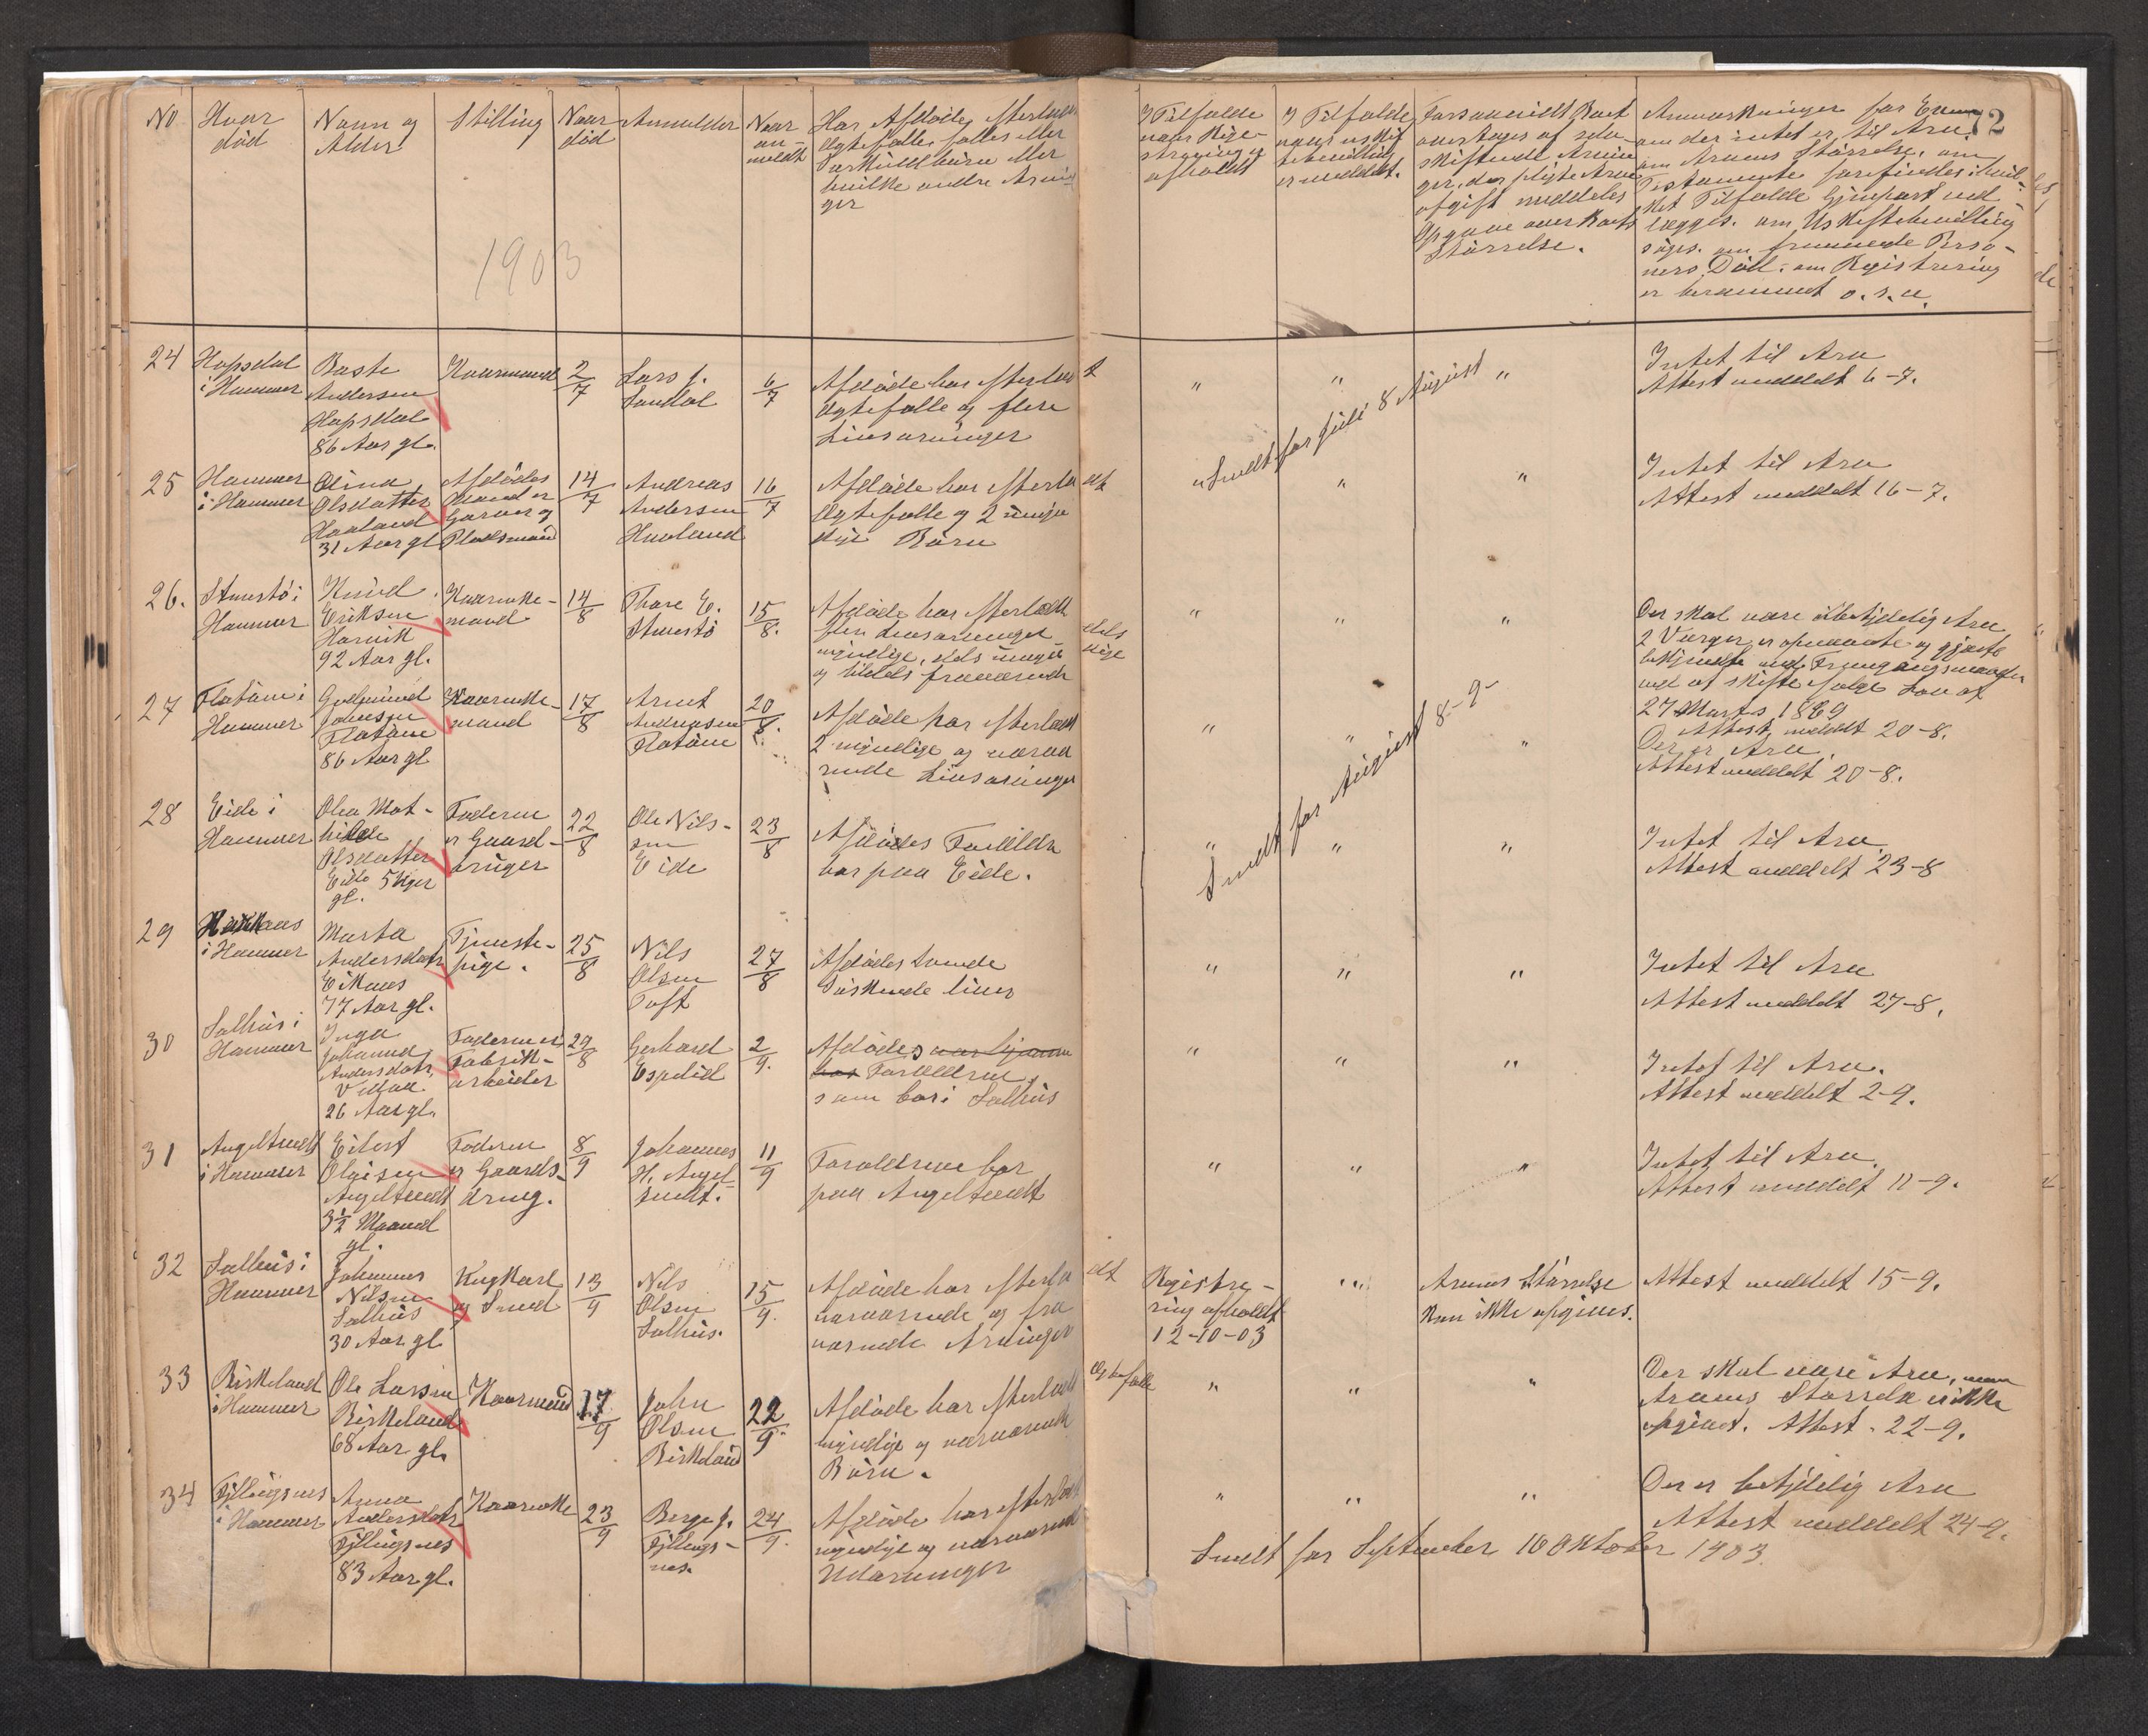 72
No
Hvor
død
Navn og
Alder
Stilling
Naar
død
Anmelder
Naar
an-
meldt
Har Afdøde efterladt
Ægtefælle, fælles eller
Særkuldbørn eller
hvilke andre Arvin-
ger
I Tilfælde
naar Regi-
strering er
afholdt
I Tilfælde
naar uskif-
tebevilling
er meddelt.
Forsaavidt Boet
overtages af selv-
skiftende Arvin-
ger, der pligte Arve-
afgift meddeles
Opgave over Boets
Størrelse.
Anmærkninger for Ex
om der intet er til Arv.
om Arvens Størrelse, om
Testamente forefindes i hvil-
ket Tilfælde Gjenpart ved-
lægges. om Uskiftebevilling
søges. om fremmede Perso-
ners Død. om Registrering
er berammet o. s. v.
1903
24
Hopsdal
i Hammer
Baste
Andersen
Hopsdal
86 Aar gl.
Kaarmand
2/7
Lars J.
Sandal
6/7
Afdøde har efterladt
Ægtefælle og flere
Livsarvinger
"
"
"
Intet til Arv
Attest meddelt 6-7.
Sendt for Juli 8 August
25
Hammer
i Hammer
Olina
Olsdatter
Haaland
31 Aar gl
Afdødes
Mand er
Garver og
Pladsmand
14/7
Andreas
Andersen
Haaland
16/7
Afdøde har efterladt
Ægtefælle og 2 umyn
dige Børn
"
"
"
Intet til Arv
Attest meddelt 16-7.
26.
Stenestø i
Hammer
Knud
Eriksen
Harvik
92 Aar gl.
Kaarenke-
mand
14/8
Thore E.
Stenestø
15/8.
Afdøde har efterladt
flere Livsarvinger dels
myndige, dels umyndige
og tildels fraværende
"
"
"
Der skal være ubetydelig Arv
2 Værger er opnævnte og gjorte
bekjendt med Fremgangsmaaden
ved at skifte ifølge Lov af
27 Marts 1869
Attest meddelt 20-8.
27
Flatøen i
Hammer
Gudmund
Johnsen
Flatøen
86 Aar gl
Kaarenke-
mand
17/8
Arent
Andreasen
Flatøen
20/8.
Afdøde har efterladt
2 myndige og nærvæ
rende Livsarvinger
"
"
"
Der er Arv.
Attest meddelt 20-8.
Sendt for August 8-9-
28
Eide i
Hammer
Olea Mat-
hilde
Olsdatter
Eide 5 Uger
gl.
Faderen
er Gaard-
bruger
22/8
Ole Nils-
sen
Eide
23/8
Afdødes Forældre
bor paa Eide.
"
"
"
Intet til Arv
Attest meddelt 23-8
29
i Hammer
Marta
Andersdatr
Eiknes
77 Aar gl.
Tjeneste-
pige.
25/8
Nils
Olsen
Toft
27/8
Afdødes
Søskende lever
"
"
"
Intet til Arv
Attest meddelt 27-8.
30
Salhus i
Hammer
Inga
Johanna
Andersdatr.
26 Aar gl.
Faderen er
Fabrik-
arbeider
29/8
Gerhard
Espelid
2/9.
Afdødes var hjemme
hos Forældrene,
som bor i Salhus
"
"
"
Intet til Arv.
Attest meddelt 2-9.
31
Angeltveedt
i Hammer
Eilert
Olaisen
Angeltveedt
3½ Maaned
gl.
Faderen
er Gaards-
brug.
8/9
Johannes
H. Angel-
tvedt.
11/9
Forældrene bor
paa Angeltvedt
"
"
"
Intet til Arv.
Attest meddelt 11-9.
32
Salhus i
Hammer
Johannes
Nilsen
Salhus
30 Aar gl
Ungkarl
og Smed
13/9
Nils
Olsen
Salhus.
15/9.
Afdøde har efterladt
nærværende og fra
værende Arvinger
Registre-
ring afholdt
12-10-03
"
Arvens Størrelse
kan ikke opgives.
Attest meddelt 15-9.
33
Birkeland
i Hammer
Ole Larsen
Birkeland
68 Aar gl.
Kaarmand
17/9
John
Olsen
Birkeland
22/9.
Afdøde har efterladt Ægtefælle
myndige og nærværende
Børn.
"
"
"
Der skal være Arv, men
Arvens Størrelse er ikke
opgivet. Attest. 22-9.
34
Fyllingsnes
i Hammer
Anna
Andersdatr
Fyllingsnes
83 Aar gl.
Kaarenke
23/9
Berge J.
Fyllings-
nes.
24/9.
Afdøde har efterladt
myndige og nærværende
Udarvinger
"
"
"
Der er betydelig Arv
Attest meddelt 24-9.
Sendt for September 10 Oktober 1903.